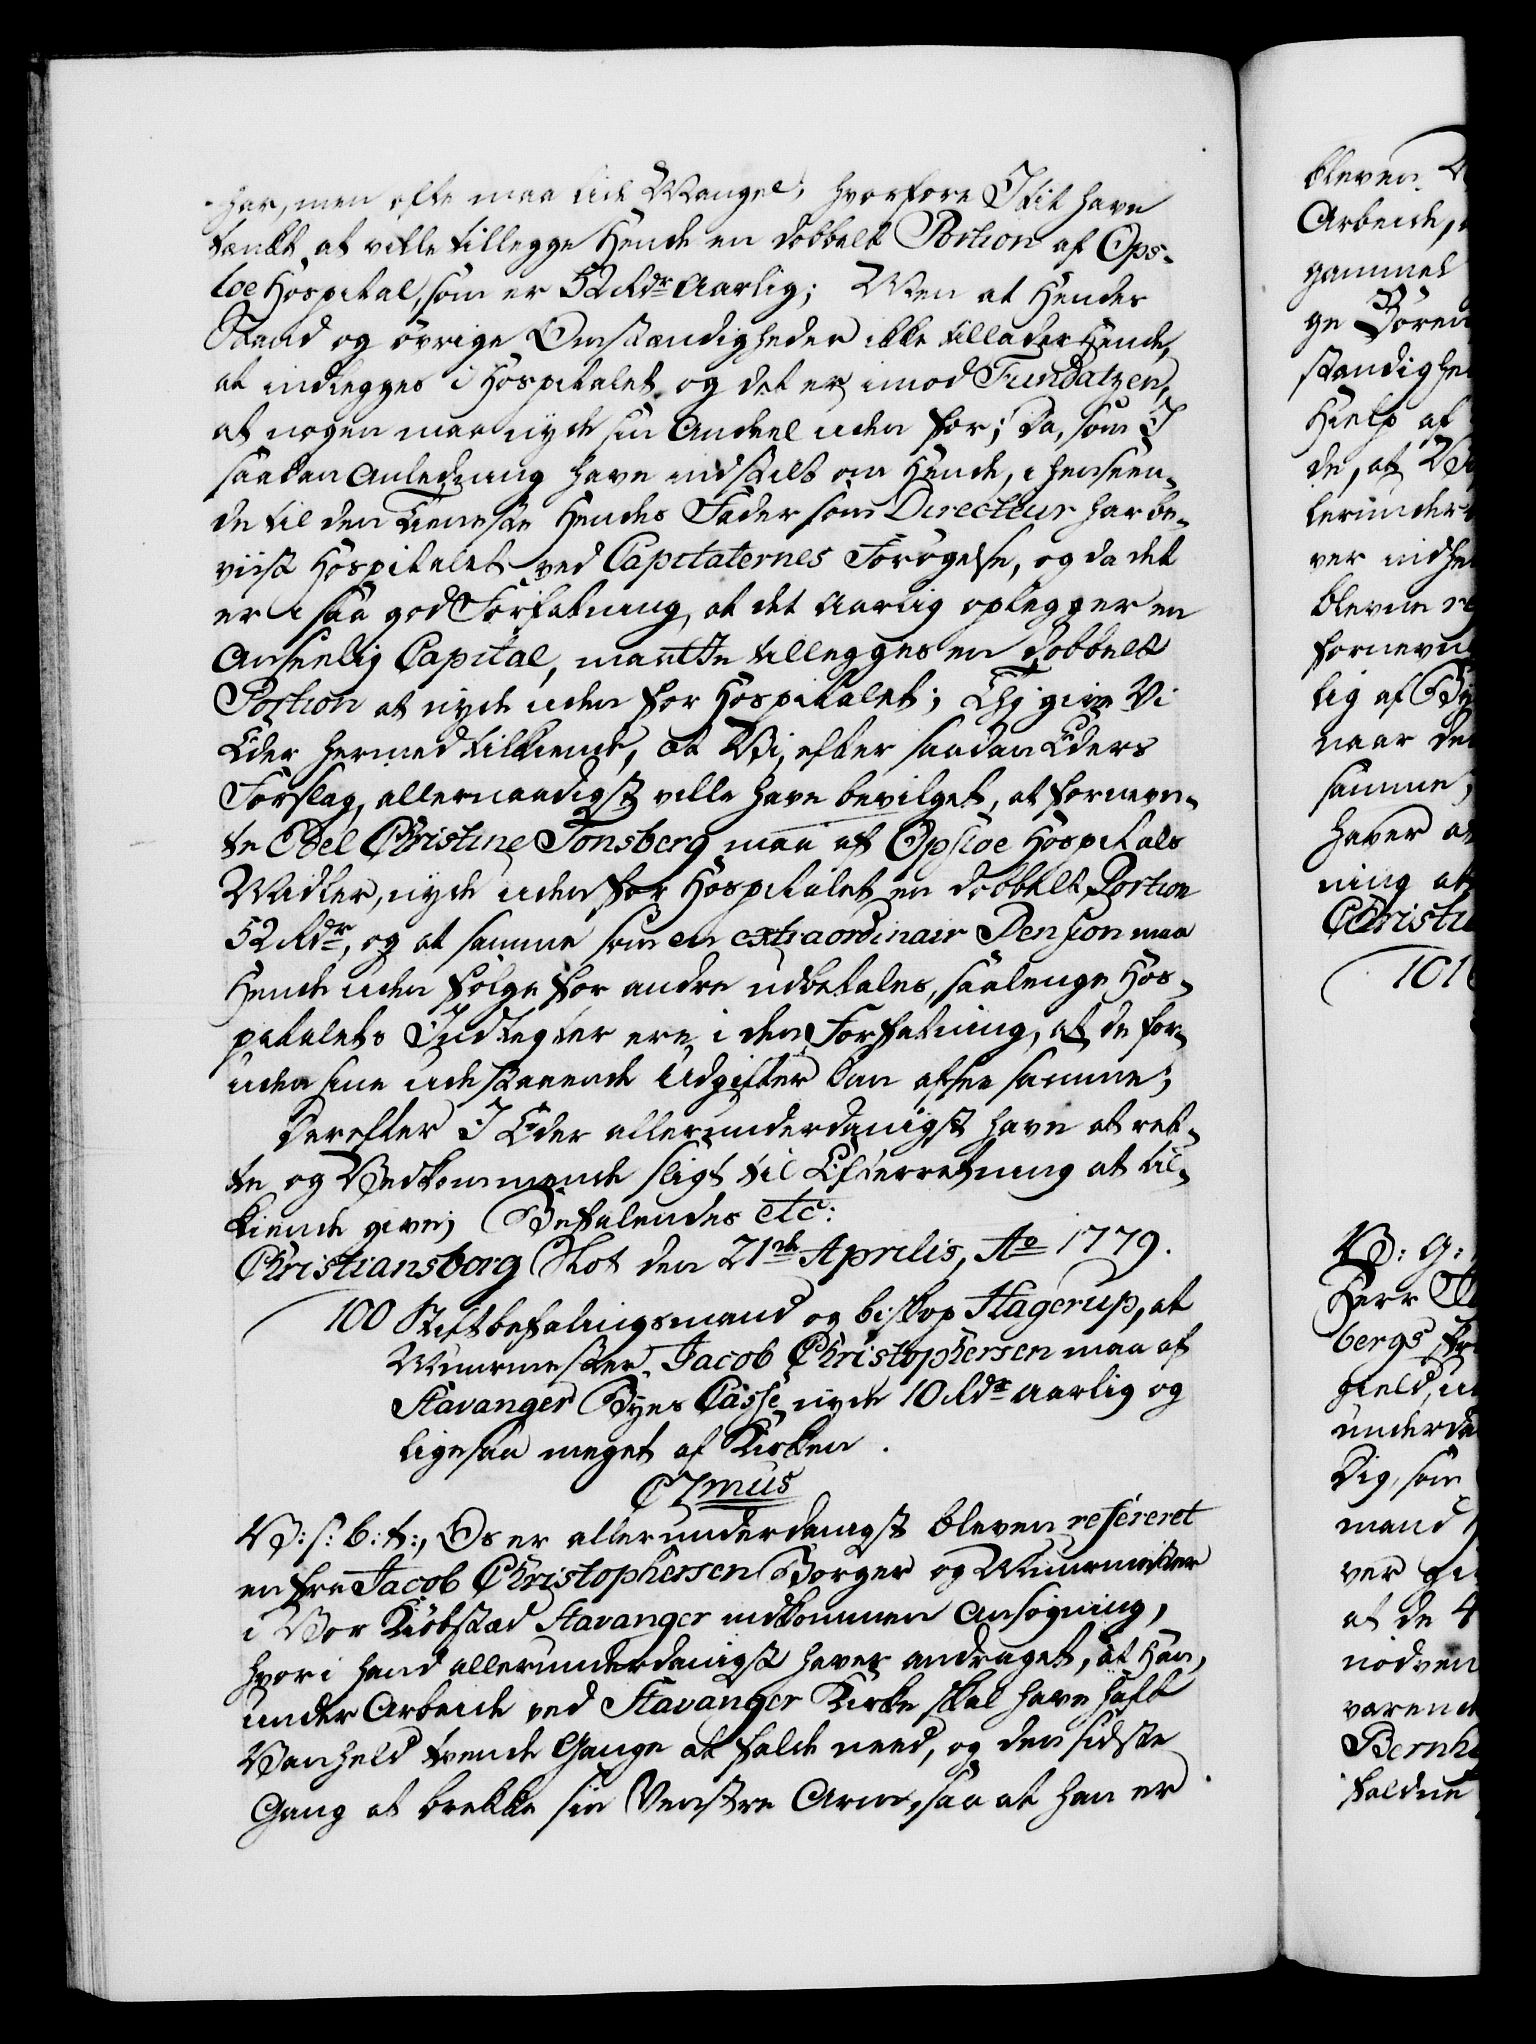 har, men ofte maa lide Mangel; hvorfore I til have
tænkt at ville tillegge Hende en dobbelt Portion af Ops-
loe Hospital, som er 52 Rdr Aarlig; Men at Hendes
Stand og övrige Omstændigheder ikke tillader Hende,
at indlegges i Hospitalet, og det er imod Fundatzen,
at nogen maa nyde sin Andeel uden for; Da, som I
saadan Anledning have indstilt om Hende, i henseen-
de til den Tieneste Hendes Fader som Directeur har be-
viist Hospitalet ved Capitalernes Forögelse, og da det
er i saa god Forfatning, at det Aarlig oplegger en
Anseelig Capital, maatte tillegges en dobbelt
Portion at nyde uden for Hospitalet; Thj give Vi
Eder hermed tilkiende, at Vi, efter saadan Eders
Forslag, allernaadigst ville have bevilget, at fornevn-
te Edel Christine Tonsberg maa af Opsloe Hospitals
Midler, nyde uden for Hospitalet en dobbelt Portion
52 Rdr, og at samme som en extraordinair Pension maa
Hende uden fölge for andre udbetales, saalenge Hos-
pitalets Indtegter ere i den Forfatning, at de for-
uden sine udestaaende Udgifter kan afsee samme;
Derefter I Eder allerunderdanigst have at ret-
te og Vedkommende sligt til Efterretning at til-
kiende give; Befalendes etc:
Christiansborg Slot den 21de Aprilis, Ao 1779.
100 Stiftbefalingsmand og biskop Hagerup, at
Muurmester Jacob Christophersen maa af
Stavanger Byes Casse nyde 10 Rdr Aarlig og
ligesaa meget af Kirken.
C7mus
V: s: b: t:, Os er allerunderdanigst bleven refereret
en fra Jacob Christophersen Borger og Muurmester
i Vor Kiöbstad Stavanger indkommen Ansögning,
hvori hand allerunderdanigst haver andraget, at Han,
under Arbeide ved Stavanger Kirke skal have haft
Vanheld tvende Gange at falde need, og den sidste
Gang at brekke sin Venstre Arm, saa at han er
bleven
Arbeide,
gammel
ge Bören
standighe
Hielp af
de, at
lerunder
ver indhe
blevne re
fornevn
lig af By
naar de
samme;
haver at
ning at
Christi
101
V: G:
Herr
bergs
field, u
underda
Dig, som
mand
ver gi
at de 4
nödven
varende
Bernh
faldne